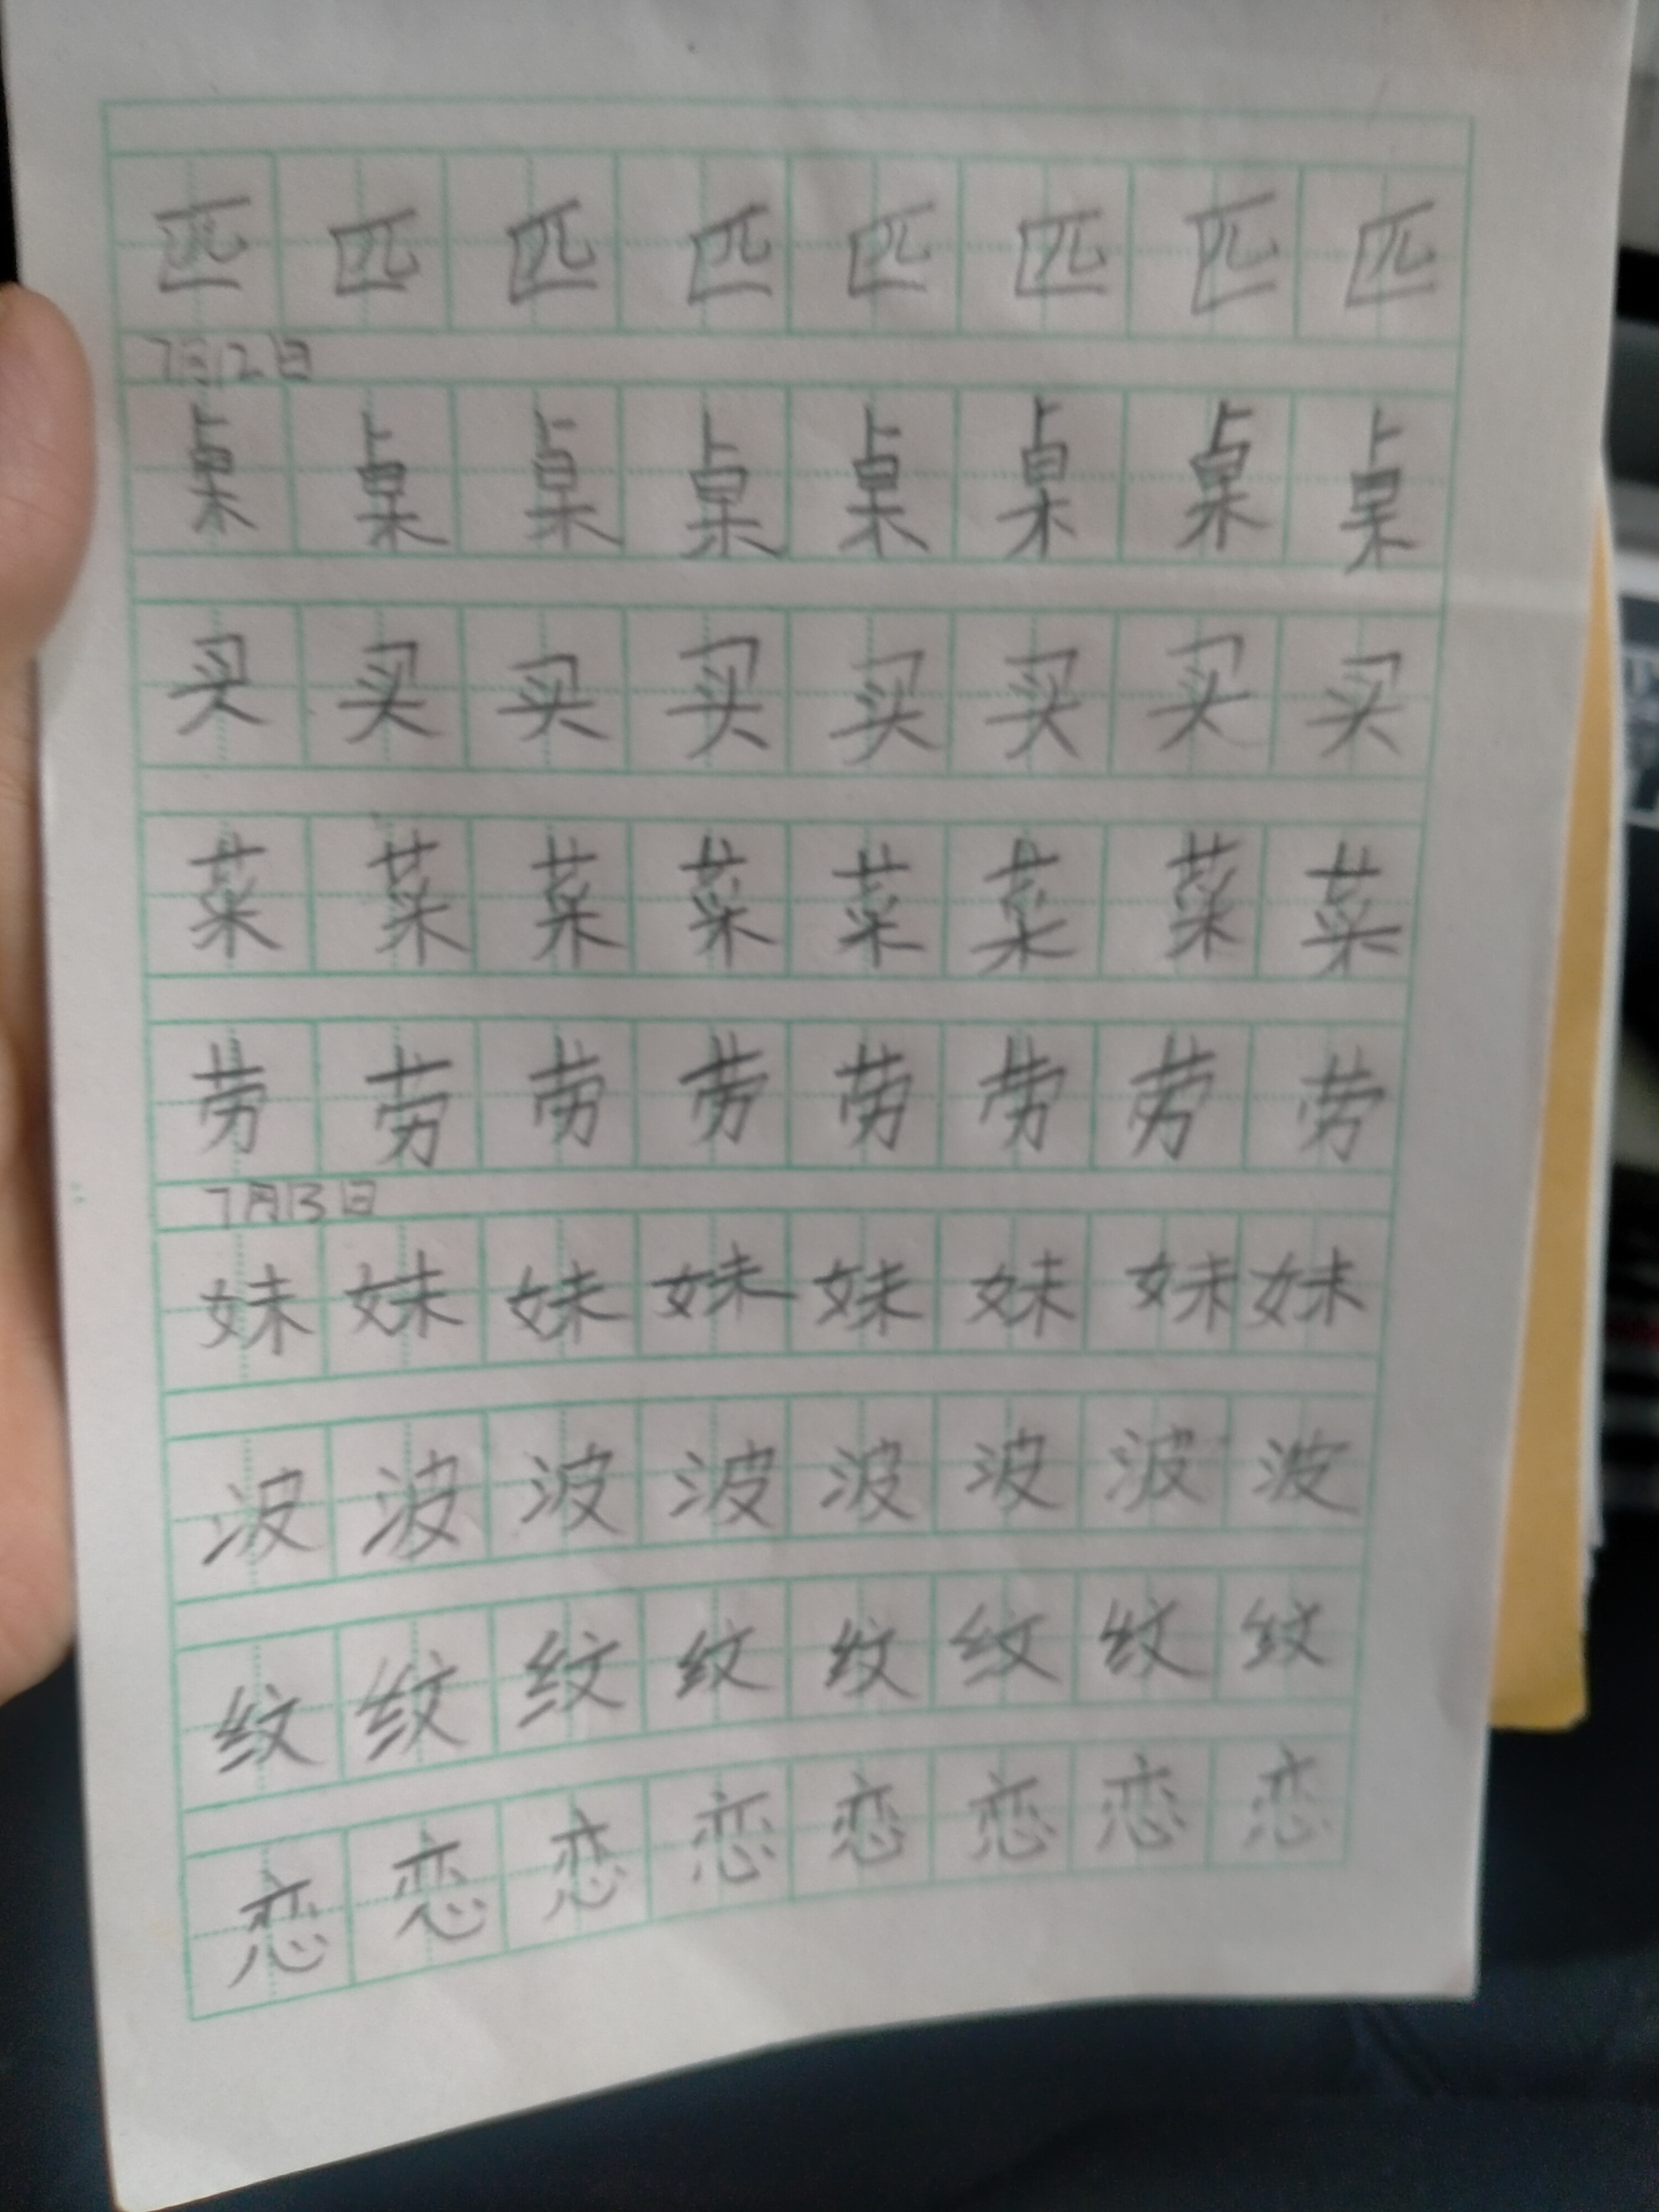 匹匹匹匹匹匹匹匹
7月12日
桌桌桌桌桌桌桌桌
买买买买买买买买
菜菜菜菜菜菜菜菜
劳劳劳劳劳劳劳劳
7月13日
妹妹妹妹妹妹妹妹
波波波波波波波波
纹纹纹纹纹纹纹纹
恋恋恋恋恋恋恋恋